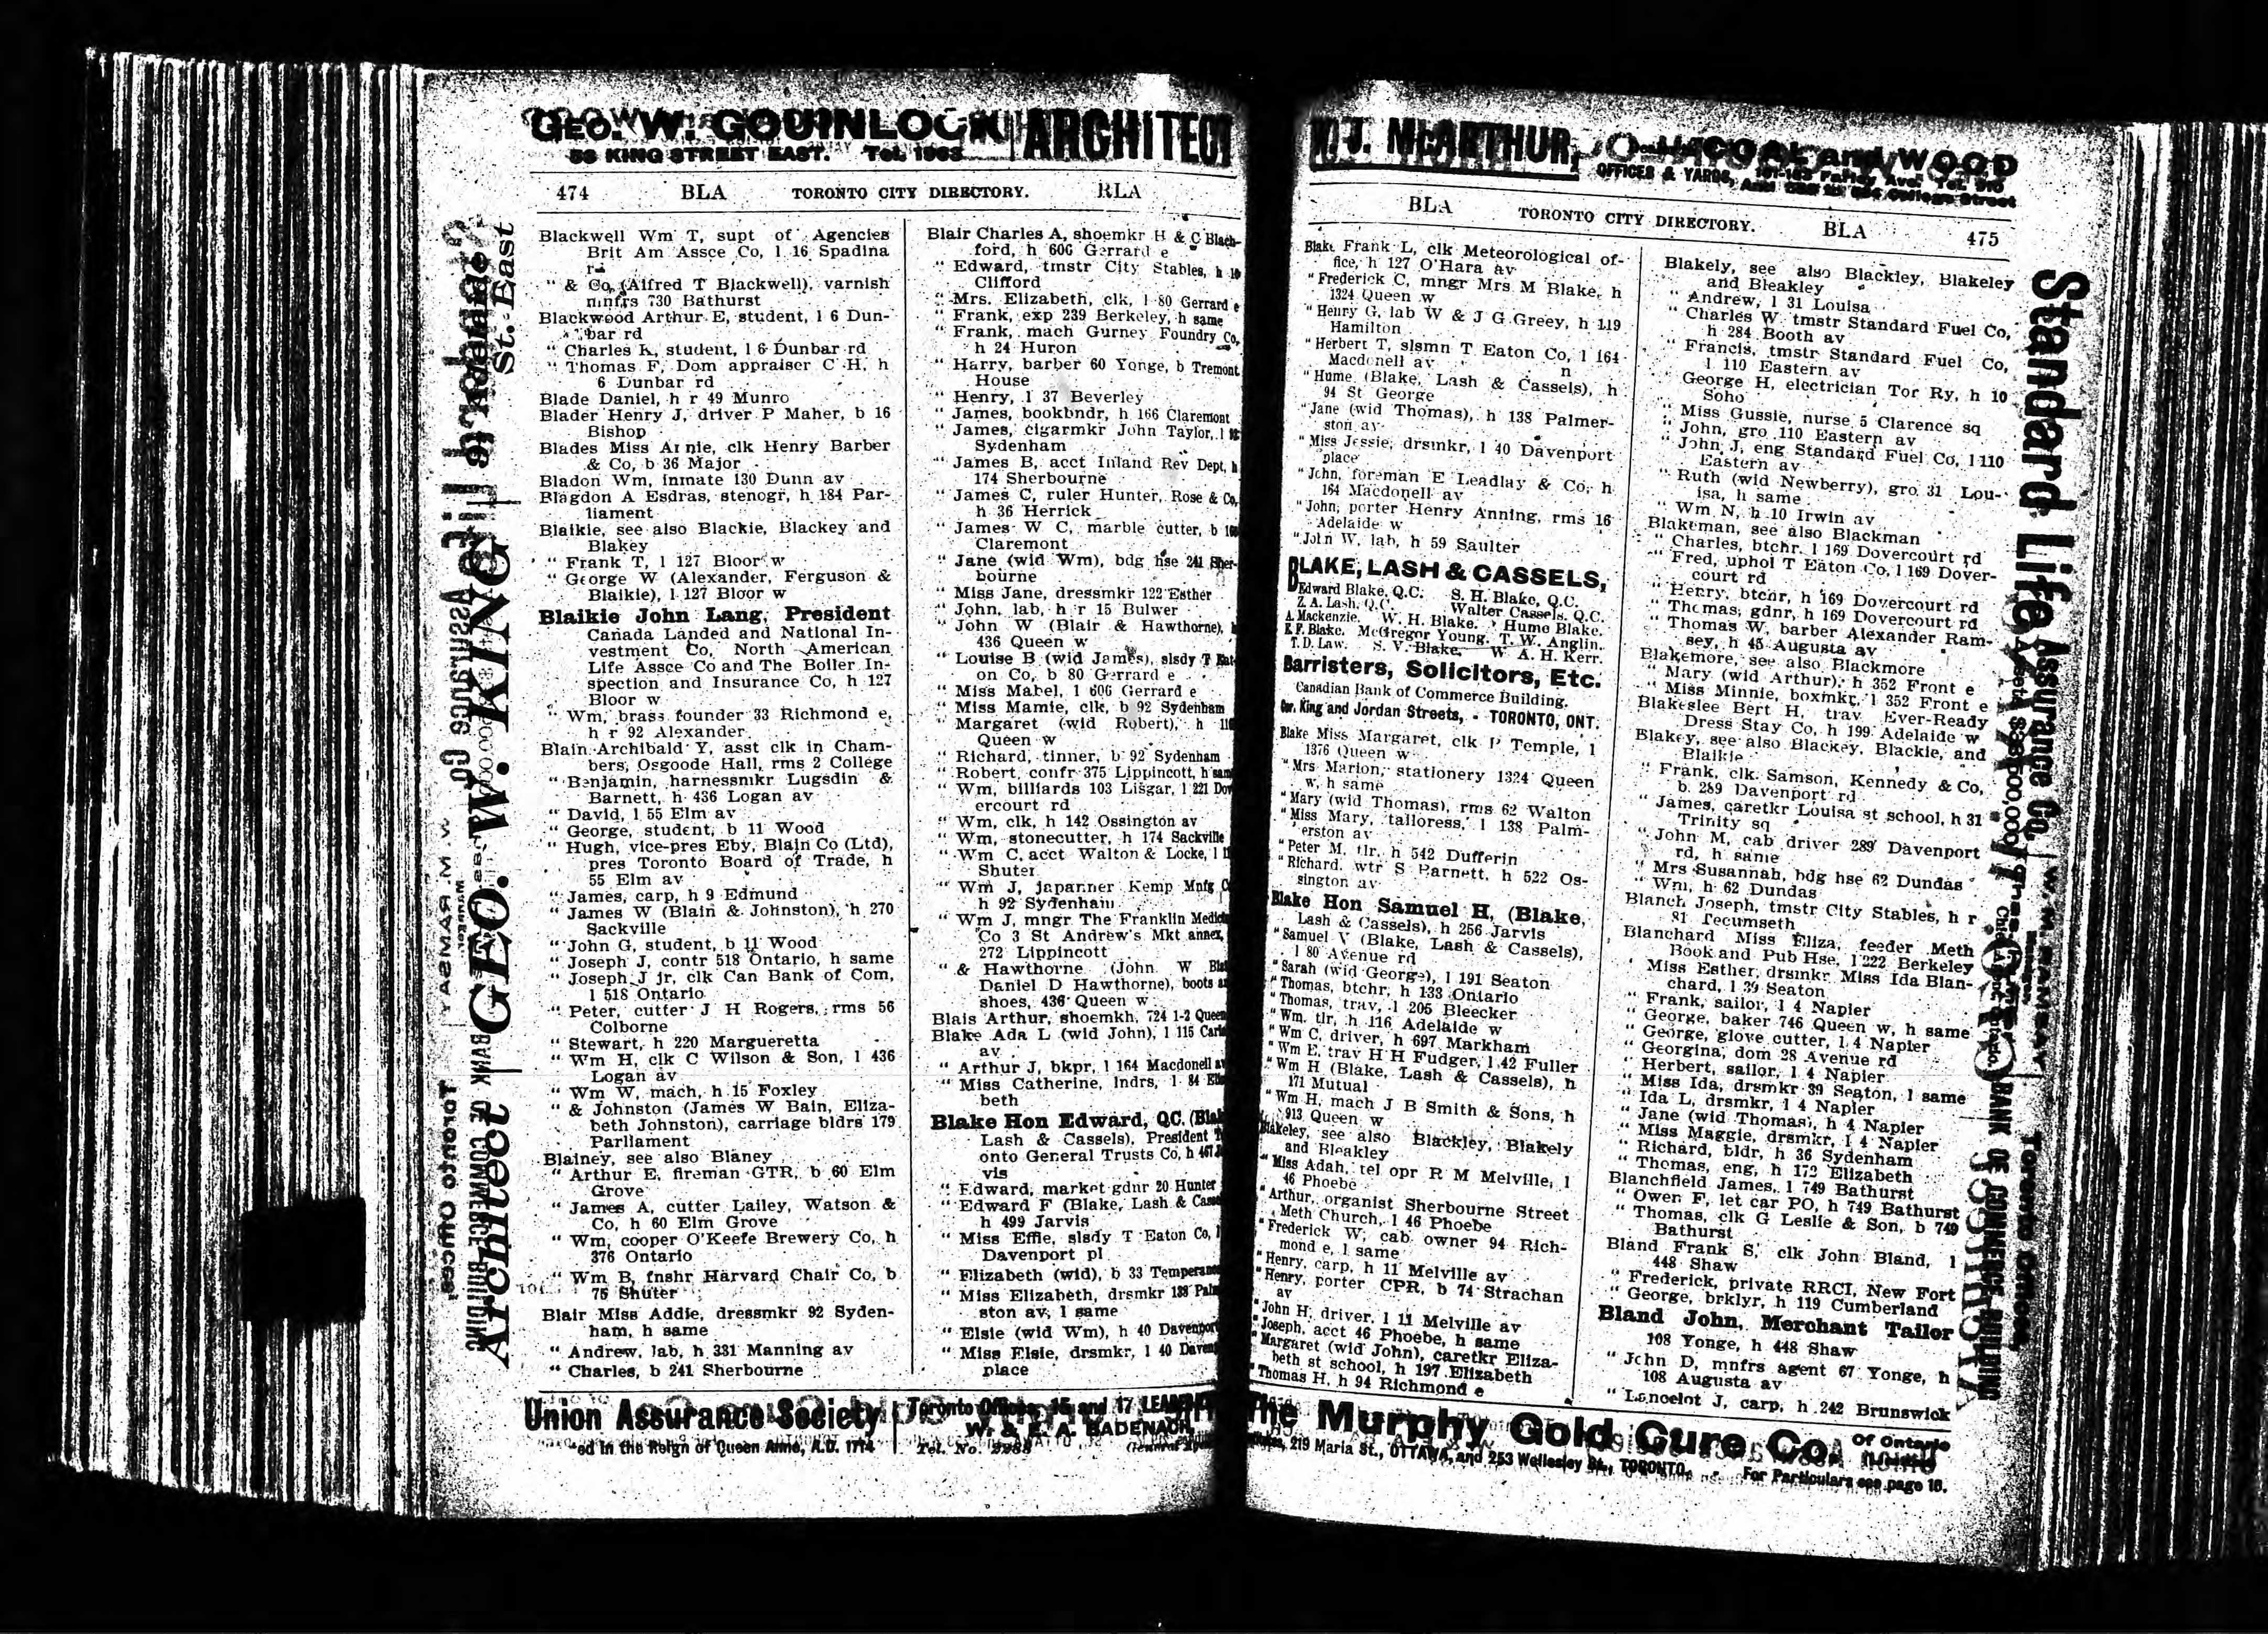 GEO. W. GOUINLOCK ARCHITECT
53 KING STREET EAST. Tel. 1963
474 BLA TORONTO CITY DIRECTORY. BLA
Blackwell Wm T, supt of Agencies
Brit Am Assce Co, l 16 Spadina
rd
" & Co, (Alfred T Blackwell), varnish
mnfrs 730 Bathurst
Blackwood Arthur E, student, l 6 Dun-
bar rd
" Charles K, student, l 6 Dunbar rd
" Thomas F, Dom appraiser C H, h
6 Dunbar rd
Blade Daniel, h r 49 Munro
Blader Henry J, driver P Maher, b 16
Bishop
Blades Miss Annie, clk Henry Barber
& Co, b 36 Major
Bladon Wm, inmate 130 Dunn av
Blagdon A Esdras, stenogr, h 184 Par-
liament
Blaikie, see also Blackie, Blackey and
Blakey
" Frank T, l 127 Bloor w
" George W (Alexander, Ferguson &
Blaikie), l 127 Bloor w
Blaikie John Lang, President
Canada Landed and National In-
vestment Co, North American
Life Assce Co and The Boiler In-
spection and Insurance Co, h 127
Bloor w
" Wm, brass founder 33 Richmond e,
h r 92 Alexander
Blain Archibald Y, asst clk in Cham-
bers, Osgoode Hall, rms 2 College
" Benjamin, harnessmkr Lugsdin &
Barnett, h 436 Logan av
" David, l 55 Elm av
" George, student, b 11 Wood
" Hugh, vice-pres Eby, Blain Co (Ltd),
pres Toronto Board of Trade, h
55 Elm av
" James, carp, h 9 Edmund
" James W (Blain & Johnston), h 270
Sackville
" John G, student, b 11 Wood
" Joseph J, contr 518 Ontario, h same
" Joseph J jr, clk Can Bank of Com,
l 518 Ontario
" Peter, cutter J H Rogers, rms 56
Colborne
" Stewart, h 220 Margueretta
" Wm H, clk C Wilson & Son, l 436
Logan av
" Wm W, mach, h 15 Foxley
" & Johnston (James W Bain, Eliza-
beth Johnston), carriage bldrs 179
Parliament
Blainey, see also Blaney
" Arthur E, fireman GTR, b 60 Elm
Grove
" James A, cutter Lailey, Watson &
Co, h 60 Elm Grove
" Wm, cooper O'Keefe Brewery Co, h
376 Ontario
" Wm B, fnshr Harvard Chair Co, b
75 Shuter
Blair Miss Addie, dressmkr 92 Syden-
ham, h same
" Andrew, lab, h 331 Manning av
" Charles, b 241 Sherbourne
Blair Charles A, shoemkr H & C Blach-
ford, h 606 Gerrard e
" Edward, tmstr City Stables, h 10
Clifford
" Mrs. Elizabeth, clk, l 80 Gerrard e
" Frank, exp 239 Berkeley, h same
" Frank, mach Gurney Foundry Co,
h 24 Huron
" Harry, barber 60 Yonge, b Tremont
House
" Henry, l 37 Beverley
" James, bookbndr, h 166 Claremont
" James, cigarmkr John Taylor, l 92
Sydenham
" James B, acct Inland Rev Dept, h
174 Sherbourne
" James C, ruler Hunter, Rose & Co,
h 36 Herrick
" James W C, marble cutter, b
Claremont
" Jane (wid Wm), bdg hse 241 Sher-
bourne
" Miss Jane, dressmkr 122 Esther
" John, lab, h r 15 Bulwer
" John W (Blair & Hawthorne), h
436 Queen w
" Louise B (wid James), slsdy T Eat-
on Co, b 80 Gerrard e
" Miss Mabel, l 606 Gerrard e
" Miss Mamie, clk, b 92 Sydenham
" Margaret (wid Robert), h
Queen w
" Richard, tinner, b 92 Sydenham
" Robert, confr 375 Lippincott, h same
" Wm, billiards 103 Lisgar, l 221 Dov
ercourt rd
" Wm, clk, h 142 Ossington av
" Wm, stonecutter, h 174 Sackville
" Wm C, acct Walton & Locke, l
Shuter
" Wm J, japanner Kemp Mnfg C
h 92 Sydenham
" Wm J, mngr The Franklin Medic
Co 3 St Andrew's Mkt annex,
272 Lippincott
" & Hawthorne (John W Bla
Daniel D Hawthorne), boots a
shoes, 436 Queen w
Blais Arthur, shoemkh, 724 1-2 Queen
Blake Ada L (wid John), l 115 Carl
av
" Arthur J, bkpr, l 164 Macdonell av
" Miss Catherine, lndrs, l 84 Eliz
beth
Blake Hon Edward, QC. (Blak
Lash & Cassels), President T
onto General Trusts Co, h 467 J
vis
" Edward, market gdnr 20 Hunter
" Edward F (Blake, Lash & Casse
h 499 Jarvis
" Miss Effie, slsdy T Eaton Co, l
Davenport pl
" Elizabeth (wid), b 33 Temperance
" Miss Elizabeth, drsmkr 138 Palm
ston av, l same
" Elsie (wid Wm), h 40 Davenport
" Miss Elsie, drsmkr, l 40 Daven
place
Union Assurance Society
ed in the Reign of Queen Anne, A.D. 1714
Toronto Offices, 15 and 17 LEADER
W. & E. A. BADENACH
Tel. No. 2288
GEO. W. KING
Architect
Toronto Offices
BANK OF COMMERCE BUILDING
W. J. McARTHUR, COAL and WOOD
OFFICES & YARDS, 181-183 Farley Ave. Tel. 910
College Street
BLA TORONTO CITY DIRECTORY. BLA 475
Blake Frank L, clk Meteorological of-
fice, h 127 O'Hara av
" Frederick C, mngr Mrs M Blake, h
1324 Queen w
" Henry G, lab W & J G Greey, h 119
Hamilton
" Herbert T, slsmn T Eaton Co, l 164
Macdonell av
" Hume (Blake, Lash & Cassels), h
94 St George
" Jane (wid Thomas), h 138 Palmer-
ston av
" Miss Jessie, drsmkr, l 40 Davenport
place
" John, foreman E Leadlay & Co, h
164 Macdonell av
" John, porter Henry Anning, rms 16
Adelaide w
" John W, lab, h 59 Saulter
BLAKE, LASH & CASSELS,
Edward Blake, Q.C. S. H. Blake, Q.C.
Z. A. Lash, Q.C. Walter Cassels, Q.C.
A. Mackenzie. W. H. Blake. Hume Blake.
E. F. Blake. McGregor Young. T. W. Anglin.
T. D. Law. S. V. Blake. W. A. H. Kerr.
Barristers, Solicitors, Etc.
Canadian Bank of Commerce Building.
Cor. King and Jordan Streets, - TORONTO, ONT.
Blake Miss Margaret, clk P Temple, l
1376 Queen w
" Mrs Marion, stationery 1324 Queen
w, h same
" Mary (wid Thomas), rms 62 Walton
" Miss Mary, tailoress, l 138 Palm-
erston av
" Peter M, tlr, h 542 Dufferin
" Richard, wtr S Barnett, h 522 Os-
sington av
Blake Hon Samuel H, (Blake,
Lash & Cassels), h 256 Jarvis
" Samuel V (Blake, Lash & Cassels),
l 80 Avenue rd
" Sarah (wid George), l 191 Seaton
" Thomas, btchr, h 133 Ontario
" Thomas, trav, l 205 Bleecker
" Wm, tlr, h 116 Adelaide w
" Wm C, driver, h 697 Markham
" Wm E, trav H H Fudger, l 42 Fuller
" Wm H (Blake, Lash & Cassels), h
171 Mutual
" Wm H, mach J B Smith & Sons, h
913 Queen w
Blakeley, see also Blackley, Blakely
and Bleakley
" Miss Adah, tel opr R M Melville, l
46 Phoebe
" Arthur, organist Sherbourne Street
Meth Church, l 46 Phoebe
" Frederick W, cab owner 94 Rich-
mond e, l same
" Henry, carp, h 11 Melville av
" Henry, porter CPR, b 74 Strachan
av
" John H, driver, l 11 Melville av
" Joseph, acct 46 Phoebe, h same
" Margaret (wid John), caretkr Eliza-
beth st school, h 197 Elizabeth
" Thomas H, h 94 Richmond e
Blakely, see also Blackley, Blakeley
and Bleakley
" Andrew, l 31 Louisa
" Charles W, tmstr Standard Fuel Co,
h 284 Booth av
" Francis, tmstr Standard Fuel Co,
l 110 Eastern av
" George H, electrician Tor Ry, h 10
Soho
" Miss Gussie, nurse 5 Clarence sq
" John, gro 110 Eastern av
" John J, eng Standard Fuel Co, l 110
Eastern av
" Ruth (wid Newberry), gro 31 Lou-
isa, h same
" Wm N, h 10 Irwin av
Blakeman, see also Blackman
" Charles, btchr, l 169 Dovercourt rd
" Fred, uphol T Eaton Co, l 169 Dover-
court rd
" Henry, btchr, h 169 Dovercourt rd
" Thomas, gdnr, h 169 Dovercourt rd
" Thomas W, barber Alexander Ram-
sey, h 45 Augusta av
Blakemore, see also Blackmore
" Mary (wid Arthur), h 352 Front e
" Miss Minnie, boxmkr, l 352 Front e
Blakeslee Bert H, trav Ever-Ready
Dress Stay Co, h 199 Adelaide w
Blakey, see also Blackey, Blackie, and
Blaikie
" Frank, clk Samson, Kennedy & Co,
b 289 Davenport rd
" James, caretkr Louisa st school, h 31
Trinity sq
" John M, cab driver 289 Davenport
rd, h same
" Mrs Susannah, bdg hse 62 Dundas
" Wm, h 62 Dundas
Blanch Joseph, tmstr City Stables, h r
81 Tecumseth
Blanchard Miss Eliza, feeder Meth
Book and Pub Hse, l 222 Berkeley
" Miss Esther, drsmkr Miss Ida Blan-
chard, l 39 Seaton
" Frank, sailor, l 4 Napier
" George, baker 746 Queen w, h same
" George, glove cutter, l 4 Napier
" Georgina, dom 28 Avenue rd
" Herbert, sailor, l 4 Napier
" Miss Ida, drsmkr 39 Seaton, l same
" Ida L, drsmkr, l 4 Napier
" Jane (wid Thomas), h 4 Napier
" Miss Maggie, drsmkr, l 4 Napier
" Richard, bldr, h 36 Sydenham
" Thomas, eng, h 172 Elizabeth
Blanchfield James, l 749 Bathurst
" Owen F, let car PO, h 749 Bathurst
" Thomas, clk G Leslie & Son, b 749
Bathurst
Bland Frank S, clk John Bland, l
448 Shaw
" Frederick, private RRCI, New Fort
" George, brklyr, h 119 Cumberland
Bland John, Merchant Tailor
108 Yonge, h 448 Shaw
" John D, mnfrs agent 67 Yonge, h
108 Augusta av
" Lancelot J, carp, h 242 Brunswick
The Murphy Gold Cure Co. Of Ontario
219 Maria St., OTTAWA, and 253 Wellesley St., TORONTO. For Particulars see page 16.
Standard Life Assurance Co.
W. M. RAMSAY
Toronto Offices
BANK OF COMMERCE BUILDING